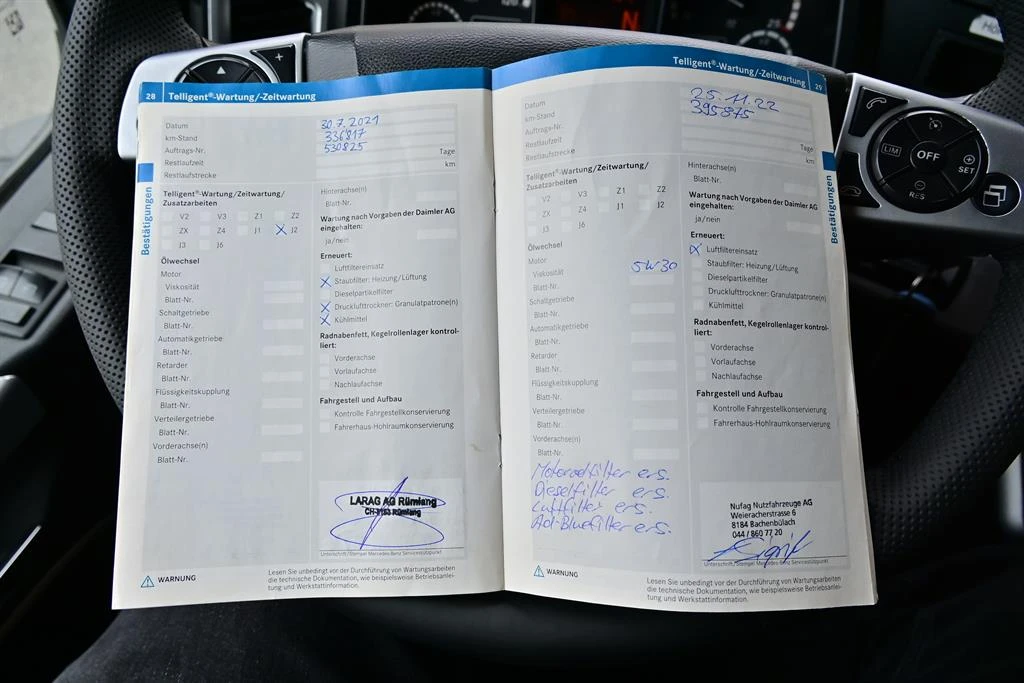 28 Telligent®-Wartung/-Zeitwartung
Datum 30.7.2021
km-Stand 336'817
Auftrags-Nr. 530825
Restlaufzeit Tage
Restlaufstrecke km
Bestätigungen
Telligent®-Wartung/Zeitwartung/
Zusatzarbeiten
V2 V3 Z1 Z2
ZX Z4 J1 X J2
J3 J6
Ölwechsel
Motor
Viskosität
Blatt-Nr.
Schaltgetriebe
Blatt-Nr.
Automatikgetriebe
Blatt-Nr.
Retarder
Blatt-Nr.
Flüssigkeitskupplung
Blatt-Nr.
Verteilergetriebe
Blatt-Nr.
Vorderachse(n)
Blatt-Nr.
Hinterachse(n)
Blatt-Nr.
Wartung nach Vorgaben der Daimler AG
eingehalten:
ja/nein
Erneuert:
Luftfiltereinsatz
X Staubfilter: Heizung/Lüftung
Dieselpartikelfilter
X Drucklufttrockner: Granulatpatrone(n)
X Kühlmittel
Radnabenfett, Kegelrollenlager kontrol-
liert:
Vorderachse
Vorlaufachse
Nachlaufachse
Fahrgestell und Aufbau
Kontrolle Fahrgestellkonservierung
Fahrerhaus-Hohlraumkonservierung
LARAG AG Rümlang
CH-8153 Rümlang
Unterschrift/Stempel Mercedes-Benz Servicestützpunkt
WARNUNG
Lesen Sie unbedingt vor der Durchführung von Wartungsarbeiten
die technische Dokumentation, wie beispielsweise Betriebsanlei-
tung und Werkstattinformation.
Telligent®-Wartung/-Zeitwartung 29
Datum 25.11.22
km-Stand 395875
Auftrags-Nr.
Restlaufzeit Tage
Restlaufstrecke km
Bestätigungen
Telligent®-Wartung/Zeitwartung/
Zusatzarbeiten
V2 V3 Z1 Z2
ZX Z4 J1 J2
J3 J6
Ölwechsel
Motor
Viskosität 5W30
Blatt-Nr.
Schaltgetriebe
Blatt-Nr.
Automatikgetriebe
Blatt-Nr.
Retarder
Blatt-Nr.
Flüssigkeitskupplung
Blatt-Nr.
Verteilergetriebe
Blatt-Nr.
Vorderachse(n)
Blatt-Nr.
Dieselfilter ers.
Luftfilter ers.
Ad-Bluefilter ers.
Hinterachse(n)
Blatt-Nr.
Wartung nach Vorgaben der Daimler AG
eingehalten:
ja/nein
Erneuert:
X Luftfiltereinsatz
Staubfilter: Heizung/Lüftung
Dieselpartikelfilter
Drucklufttrockner: Granulatpatrone(n)
Kühlmittel
Radnabenfett, Kegelrollenlager kontrol-
liert:
Vorderachse
Vorlaufachse
Nachlaufachse
Fahrgestell und Aufbau
Kontrolle Fahrgestellkonservierung
Fahrerhaus-Hohlraumkonservierung
Nufag Nutzfahrzeuge AG
Weieracherstrasse 6
8184 Bachenbülach
044 / 860 77 20
Unterschrift/Stempel Mercedes-Benz Servicestützpunkt
WARNUNG
Lesen Sie unbedingt vor der Durchführung von Wartungsarbeiten
die technische Dokumentation, wie beispielsweise Betriebsanlei-
tung und Werkstattinformation.
120
N
25
LIM OFF SET
RES